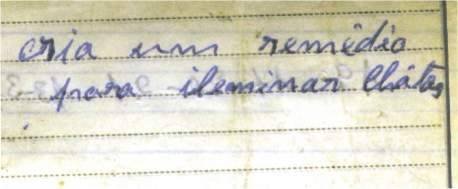 cria um remédio
para ileminar Chátas